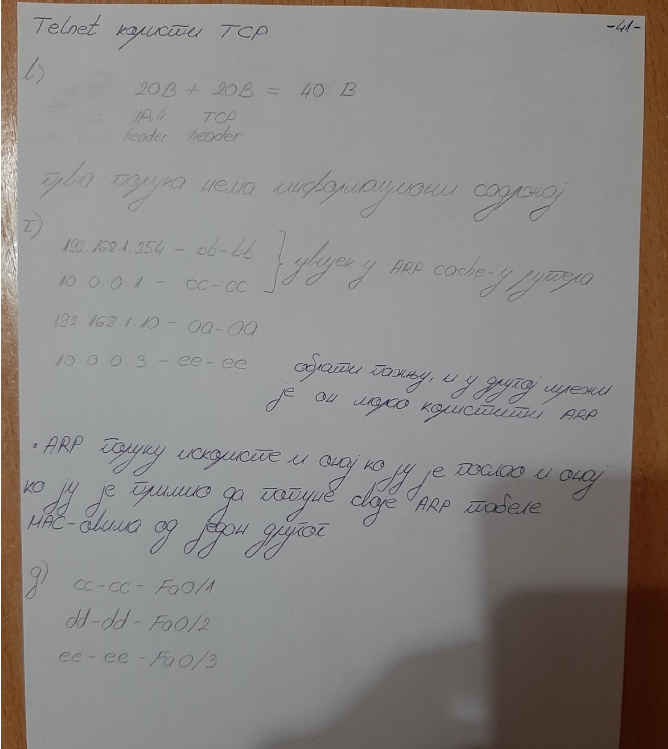 Telnet користи TCP
-41-
в)
20B + 20B = 40 B
IPv4 TCP
header header
прва порука нема информациони садржај
г)
192.168.1.254 - bb-bb
10.0.0.1 - cc-cc
увијек у ARP cache-у рутера
192.168.1.10 - aa-aa
10.0.0.3 - ee-ee
обрати пажњу, и у другој мрежи
је он морао користити ARP
• ARP поруку искористе и онај ко ју је послао и онај
ко ју је примио да попуне своје ARP табеле
MAC-овима од један другог
д)
cc-cc - Fa0/1
dd-dd - Fa0/2
ee-ee - Fa0/3